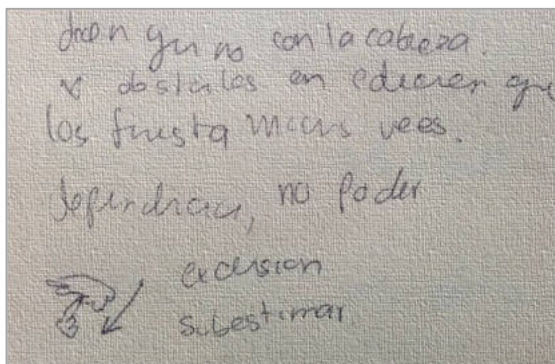 dicen que no con la cabeza.
obstaculos en educacion que
los frustra muchas veces.
dependencia, no poder
exclusion
subestimar.